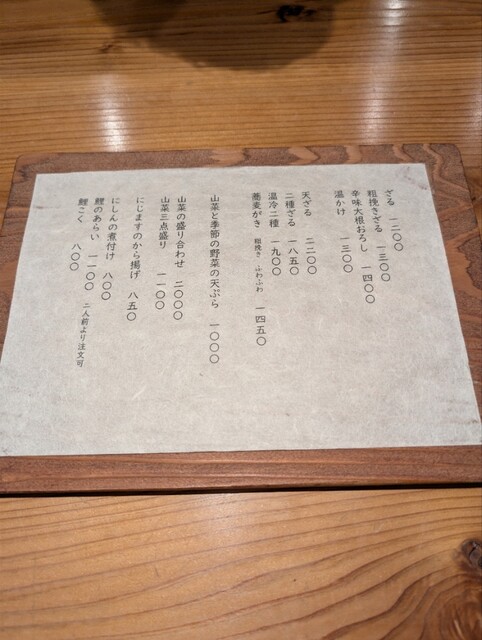 ざる 一二〇〇
粗挽きざる 一三〇〇
辛味大根おろし 一四〇〇
温かけ 一三〇〇
天ざる 二二〇〇
二種ざる 一八五〇
温冷二種 一九〇〇
蕎麦がき 粗挽き ふわふわ 一四五〇
山菜と季節の野菜の天ぷら 一〇〇〇
山菜の盛り合わせ 二〇〇〇
山菜三点盛り 一一〇〇
にじますのから揚げ 八五〇
にしんの煮付け 八〇〇
鯉のあらい 一一〇〇 二人前より注文可
鯉こく 八〇〇